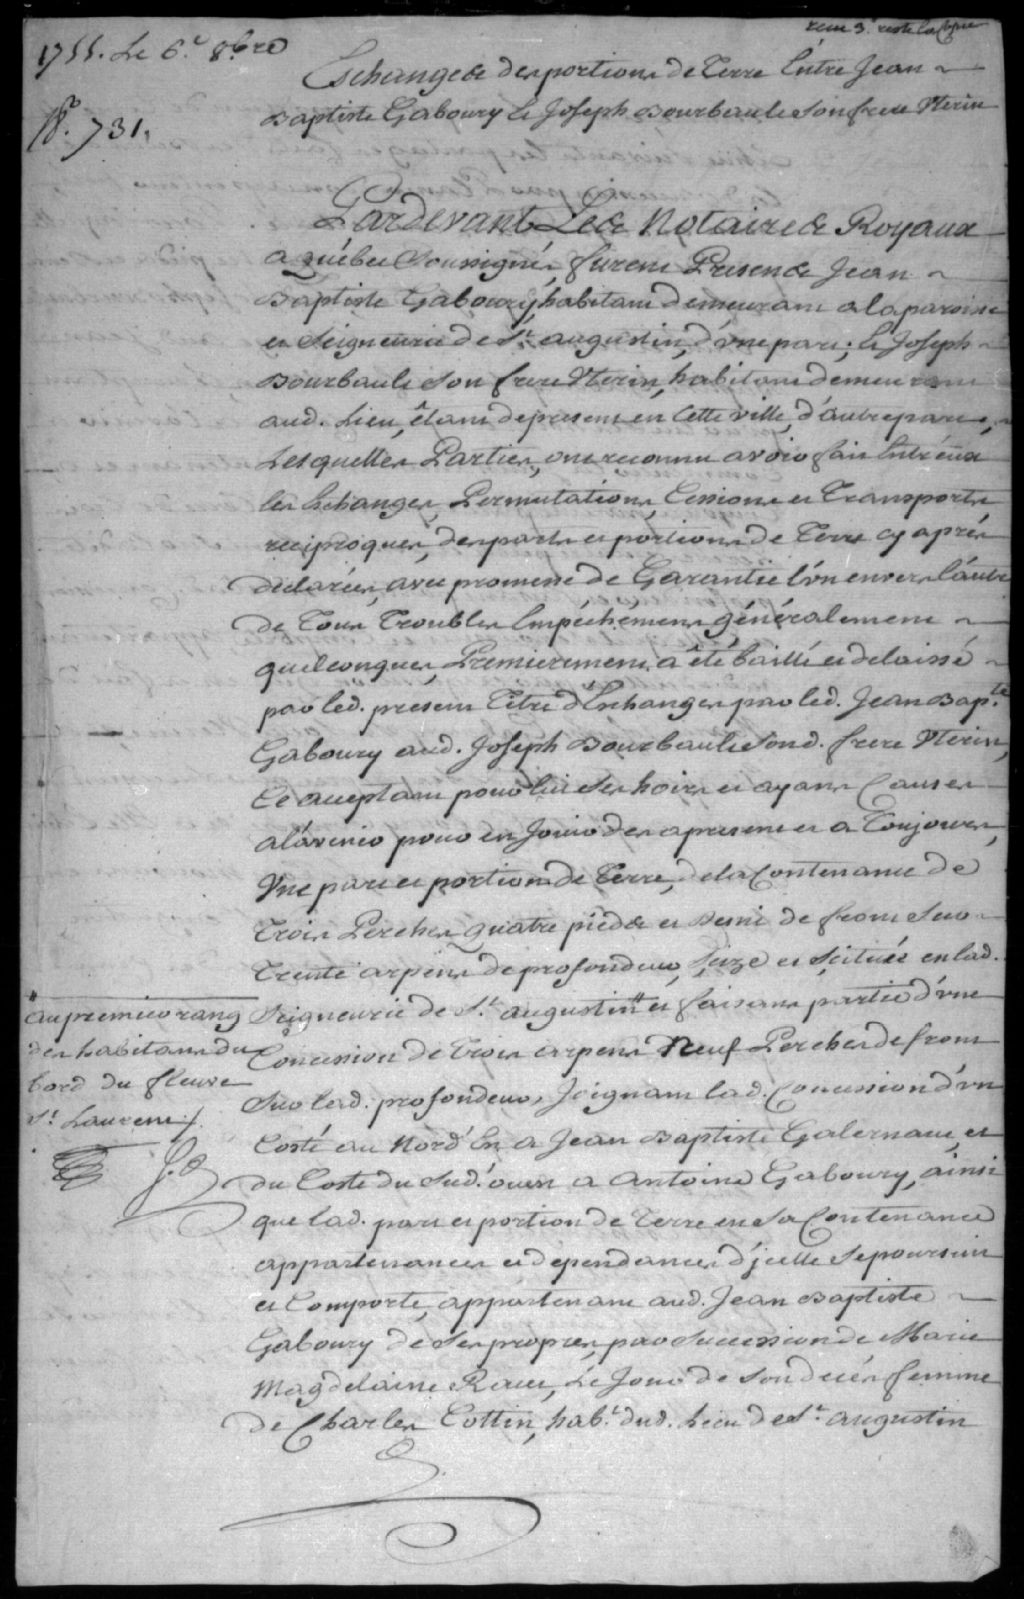 1755. Le 6.e 8bre
N.o 731.
Eschanges des portions de Terre Entre Jean
Baptiste Gaboury & Joseph Bourbault son frere Uterin
Pardevant Les Notaires Royaux
a Québec Soussignés, furent Presens Jean
Baptiste Gaboury, habitant demeurant a la paroisse
et Seigneurie de St. augustin, d'une part; & Joseph
Bourbault son frere Uterin, habitant demeurant
aud. Lieu, êtant depresent en Cette ville, d'autre part;
Lesquelles Parties, ont reconnu avoir fait Entr'eux
les Echanges, Permutations, Cessions et Transports
reciproques, des parts et portions de Terre cy après
declarées, avec promesse de Garantie l'un envers l'autre
de Tous Troubles Empéchémens généralement
quelconques, Premierement, a été baillé et delaissé
par léd. présent Titre d'Eschanges par led. Jean Bap.te
Gaboury aud. Joseph Bourbault Sond. frere Uterin,
Ce acceptant pour lui Ses hoirs et ayans Causes
al'avenir pour en Jouir des apresent et a Toujours,
Une part et portion de Terre, de la Contenance de
Trois Perches quatre pieds et Demi de front Sur
Trente arpens de profondeur, Size et Scituée en lad.
Seigneurie de St. augustin " et faisant partie d'une
Concession de Trois arpens Neuf Perches de front
Sur lad. profondeur, Joignant lad. Concession d'un
Costé au Nord Est a Jean Baptiste Galernaut, et
du Costé du Sud'ouest a Antoine Gaboury, ainsi
que lad. part et portion de Terre en Sa Contenance
appartenances et dependances d'jcelle Se poursuit
et Comporte, appartenant aud. Jean Baptiste
Gaboury de Ses propres, par Succession de Marie
Magdelaine Racet, Lé Jour de Son decés femme
de Charles Cottin, hab.t dud. Lieu de St. augustin
" au premier rang
des habitans du
bord du fleuve
St. Laurent /.
J. B